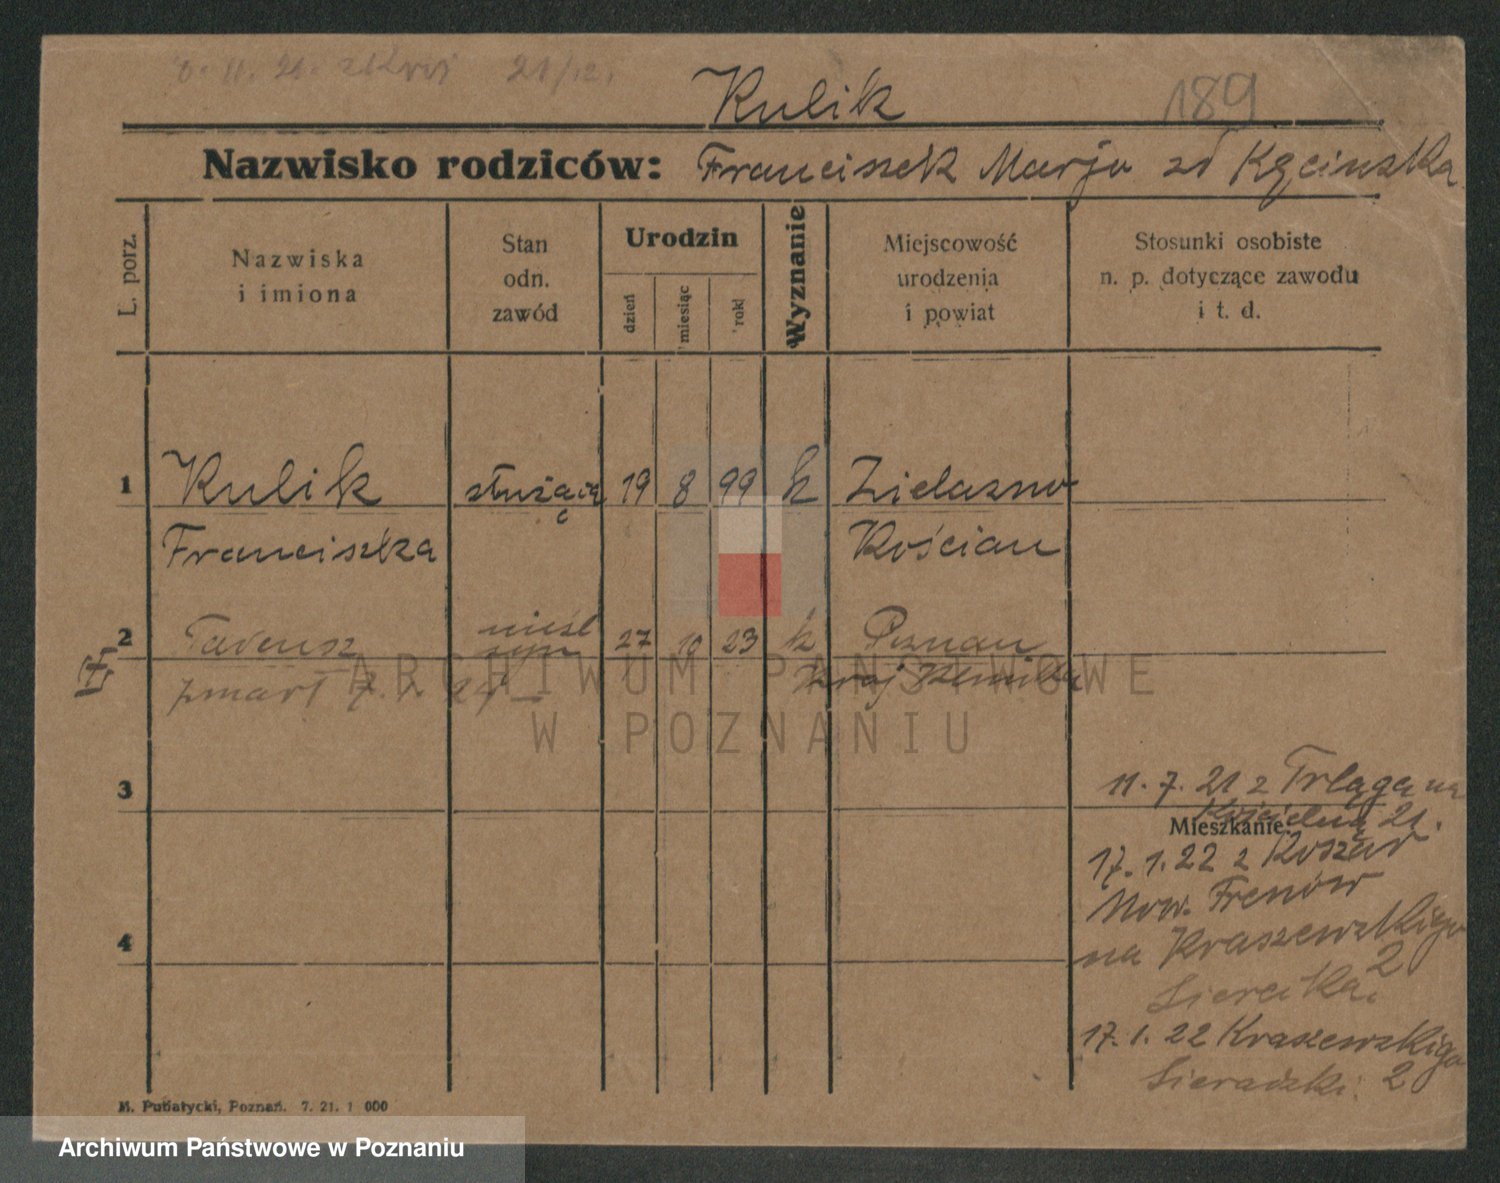 21/12.
Kulik
189
Nazwisko rodziców: Franciszek Marja zd Kęcinska
L. porz.
Nazwiska
i imiona
Stan
odn.
zawód
Urodzin
dzień
miesiąc
rok
Wyznanie
Miejscowość
urodzenia
i powiat
Stosunki osobiste
n. p. dotyczące zawodu
i t. d.
1 Kulik służąca 19 8 99 k Zielazno
Franciszka Kościan
2 Tadeusz nieśl syn 27 10 23 k Poznan
zmarł 7. 24 Kraj
3
11. 7. 21 z Trląga na
Kościelną 21.
Mieszkanie:
17. 1. 22 z Koszar
Now. Trenów
na Kraszewskiego
2
4
17. 1. 22 Kraszewskiego
Sieradzki. 2
M. Putiatycki, Poznań. 7. 21. 1 000
ARCHIWUM PAŃSTWOWE
W POZNANIU
Archiwum Państwowe w Poznaniu